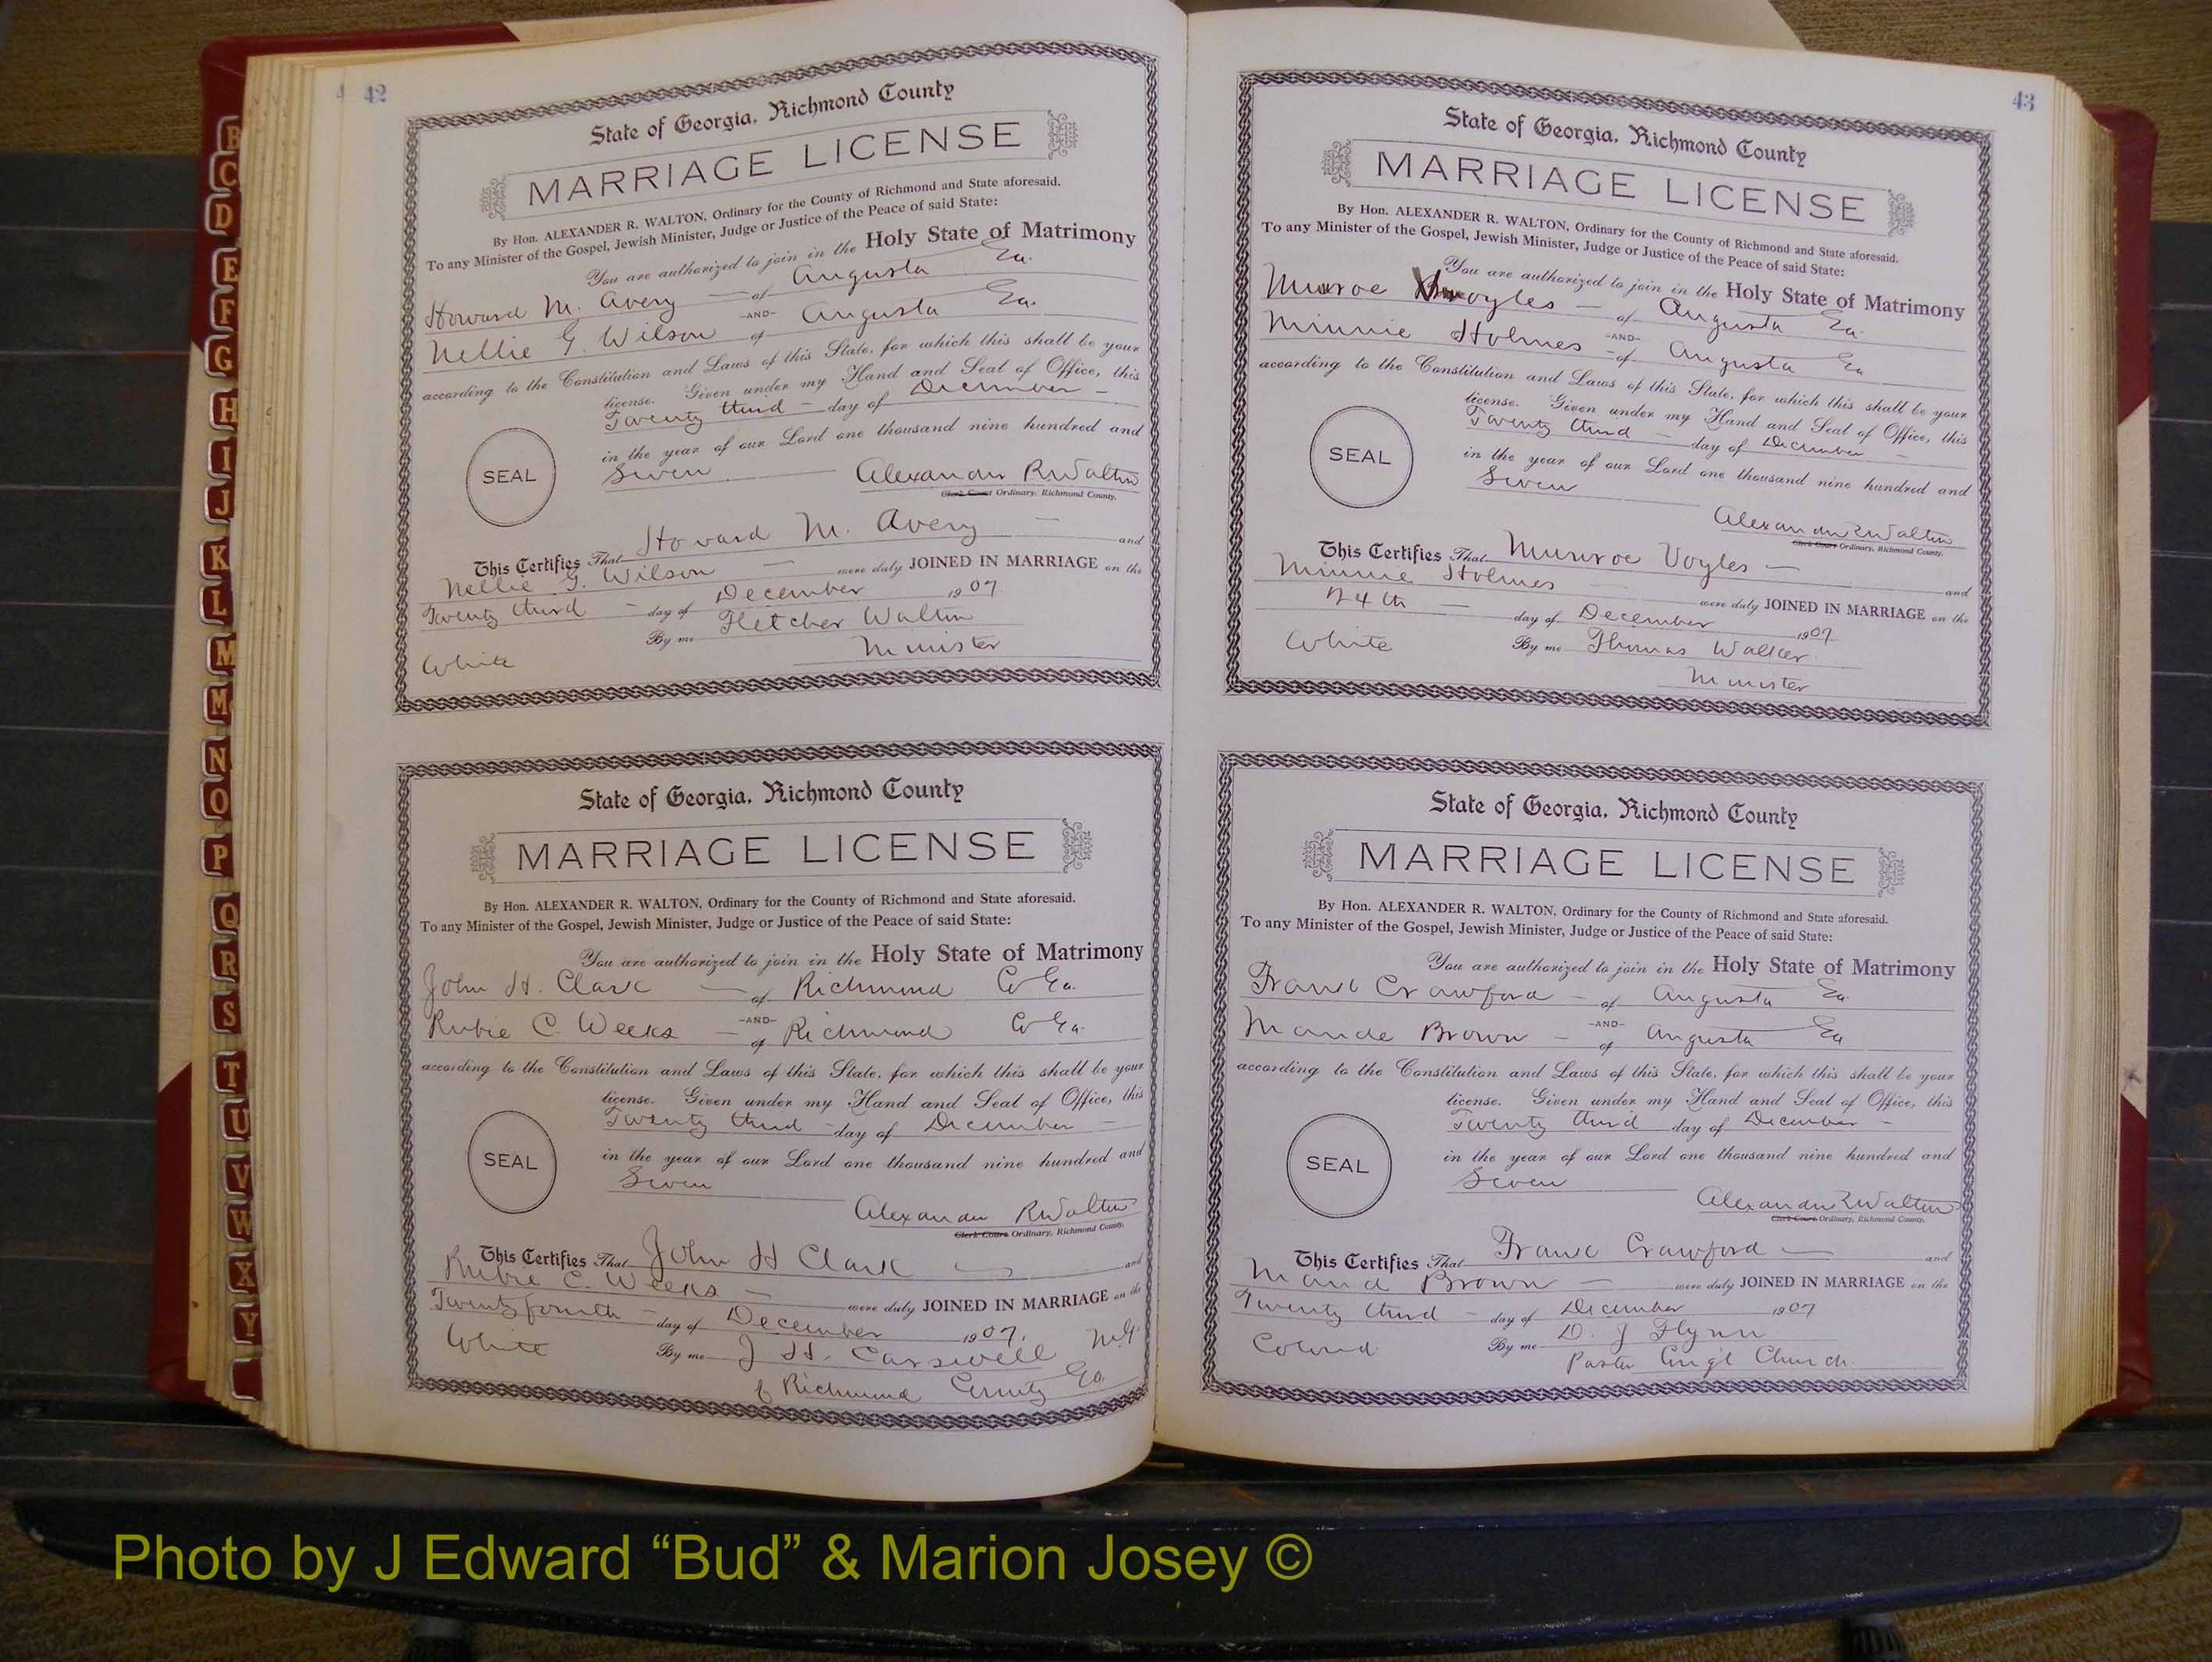 B
C
D
E
F
G
H
I
J
K
L
M
M
N
O
P
Q
R
S
T
U
V
W
X
Y
4 42
State of Georgia, Richmond County
MARRIAGE LICENSE
By Hon. ALEXANDER R. WALTON, Ordinary for the County of Richmond and State aforesaid.
To any Minister of the Gospel, Jewish Minister, Judge or Justice of the Peace of said State:
You are authorized to join in the Holy State of Matrimony
Howard M. Avery — of Augusta Ga.
-AND-
Nellie G. Wilson of Augusta Ga.
according to the Constitution and Laws of this State, for which this shall be your
license. Given under my Hand and Seal of Office, this
Twenty third — day of December —
in the year of our Lord one thousand nine hundred and
Seven
SEAL
Alexander R Walton
Clerk Court Ordinary, Richmond County.
This Certifies That Howard M. Avery — and
Nellie G. Wilson — were duly JOINED IN MARRIAGE on the
Twenty third — day of December 1907
By me Fletcher Walton
White Minister
State of Georgia, Richmond County
MARRIAGE LICENSE
By Hon. ALEXANDER R. WALTON, Ordinary for the County of Richmond and State aforesaid.
To any Minister of the Gospel, Jewish Minister, Judge or Justice of the Peace of said State:
You are authorized to join in the Holy State of Matrimony
John H. Clark — of Richmond Co Ga.
-AND-
Rubie C. Weeks — of Richmond Co Ga.
according to the Constitution and Laws of this State, for which this shall be your
license. Given under my Hand and Seal of Office, this
Twenty third — day of December —
in the year of our Lord one thousand nine hundred and
Seven
SEAL
Alexander R Walton
Clerk Court Ordinary, Richmond County.
This Certifies That John H Clark — and
Rubie C. Weeks — were duly JOINED IN MARRIAGE on the
Twenty fourth — day of December 1907.
White By me J H. Carswell M.G.
of Richmond County Ga
43
State of Georgia, Richmond County
MARRIAGE LICENSE
By Hon. ALEXANDER R. WALTON, Ordinary for the County of Richmond and State aforesaid.
To any Minister of the Gospel, Jewish Minister, Judge or Justice of the Peace of said State:
You are authorized to join in the Holy State of Matrimony
Munroe Voyles — of Augusta Ga.
-AND-
Minnie Holmes — of Augusta Ga
according to the Constitution and Laws of this State, for which this shall be your
license. Given under my Hand and Seal of Office, this
Twenty third — day of December —
in the year of our Lord one thousand nine hundred and
Seven
SEAL
Alexander R Walton
Clerk Court Ordinary, Richmond County.
This Certifies That Munroe Voyles — and
Minnie Holmes were duly JOINED IN MARRIAGE on the
24th — day of December 1907.
White By me Thomas Walker
Minister
State of Georgia, Richmond County
MARRIAGE LICENSE
By Hon. ALEXANDER R. WALTON, Ordinary for the County of Richmond and State aforesaid.
To any Minister of the Gospel, Jewish Minister, Judge or Justice of the Peace of said State:
You are authorized to join in the Holy State of Matrimony
Frank Crawford — of Augusta Ga.
-AND-
Maude Brown — of Augusta Ga
according to the Constitution and Laws of this State, for which this shall be your
license. Given under my Hand and Seal of Office, this
Twenty third day of December —
in the year of our Lord one thousand nine hundred and
Seven
SEAL
Alexander R Walton
Clerk Court Ordinary, Richmond County.
This Certifies That Frank Crawford — and
Maud Brown — were duly JOINED IN MARRIAGE on the
Twenty third — day of December 1907
Colored. By me D. J Flynn
Pastor Cong'l Church.
Photo by J Edward “Bud” & Marion Josey ©